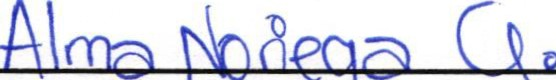 Alma Noriega